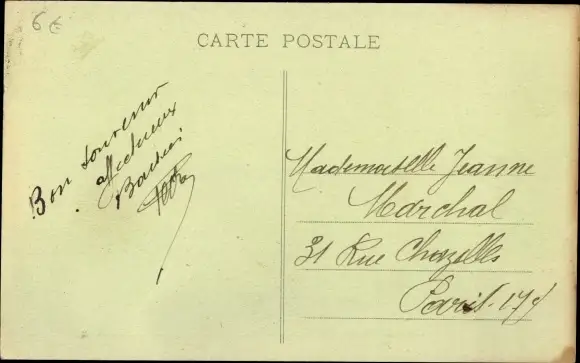 6€
CARTE POSTALE
Bon souvenir
affectueux
Baisers
Mademoiselle Jeanne
Marchal
31 Rue Chazelles
Paris. 17e